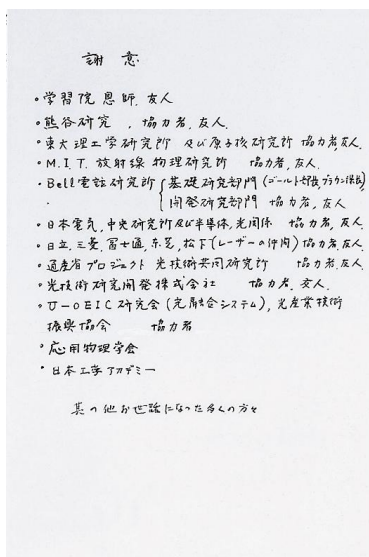 謝意
・学習院 恩師, 友人
・熊谷研究 , 協力者, 友人.
・東大理工学研究所 及び原子核研究所 協力者,友人.
・M.I.T. 放射線 物理研究所 協力者,友人.
・Bell電話研究所 基礎研究部門(ゴールド部長,ブラウン係長)
開発研究部門 協力者, 友人
・日本電気, 中央研究所及び半導体, 光関係 協力者, 友人
・日立, 三菱, 富士通, 東芝, 松下(レーザーの仲間)協力者, 友人.
・通産省プロジェクト 光技術共同研究所 協力者, 友人
・光技術研究開発株式会社 協力者, 友人.
・U-OEIC研究会(光融合システム), 光産業技術
振興協会 協力者
・応用物理学会
・日本工学アカデミー
其の他お世話になった多くの方々